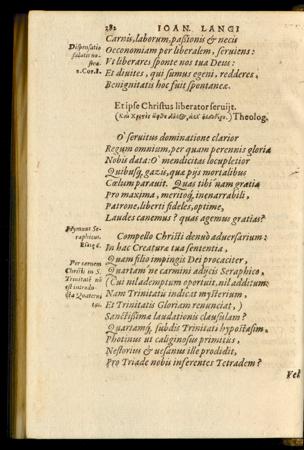 282 IOAN. LANGI
Carnis, laborum, passionis & necis
Dispensatio
Oeconomiam per liberalem, seruiens:
salutis no-
Vt liberares sponte nos tua Deus:
stræ.
2.Cor.8.
Et diuites, qui sumus egeni, redderes,
Benignitatis hoc fuit spontaneæ.
Et ipse Christus liberator seruijt.
Theolog.
O' seruitus dominatione clarior
Regum omnium, per quam perennis gloria
Nobis data: O' mendicitas locupletior
Quibusq; gazis, qua pijs mortalibus
Cœlum parauit. Quas tibi nam gratiæ
Pro maxima, meritoq; inenarrabili,
Patrone, liberti fideles, optime,
Laudes canemus? quas agemus gratias?
Hymnus Se-
raphicus.
Compello Christi denuò aduersarium:
Esaiæ 6.
In hac Creatura tua sententia,
Per carnem
Quam filio impingis Dei procaciter,
Christi in S.
Quartam ne carmini adijcis Seraphico,
Trinitatē nō
(Cui nil ademptum oportuit, nil additum:
est introdu-
Nam Trinitatis indicat mysterium,
cta Quaterni
tas.
Et Trinitatis Gloriam renunciat,)
Sanctissimæ laudationis clausulam?
Quartamq; subdis Trinitati hypostasim,
Photinus ut caliginosus primitus,
Nestorius & uesanus ille prodidit,
Pro Triade nobis inferentes Tetradem?
Vel